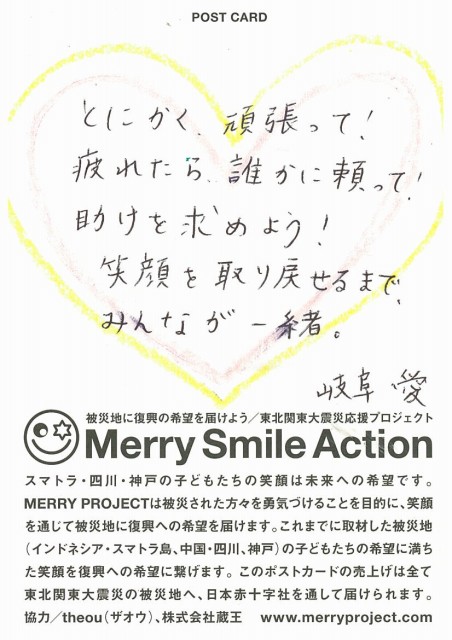 POST CARD
とにかく、頑張って！
疲れたら、誰かに頼って！
助けを求めよう！
笑顔を取り戻せるまで、
みんなが一緒。
岐阜 愛
被災地に復興の希望を届けよう／東北関東大震災応援プロジェクト
Merry Smile Action
スマトラ・四川・神戸の子どもたちの笑顔は未来への希望です。
MERRY PROJECTは被災された方々を勇気づけることを目的に、笑顔
を通じて被災地に復興への希望を届けます。これまでに取材した被災地
（インドネシア・スマトラ島、中国・四川、神戸）の子どもたちの希望に満ち
た笑顔を復興への希望に繋げます。このポストカードの売上げは全て
東北関東大震災の被災地へ、日本赤十字社を通して届けられます。
協力／theou（ザオウ）、株式会社蔵王 www.merryproject.com